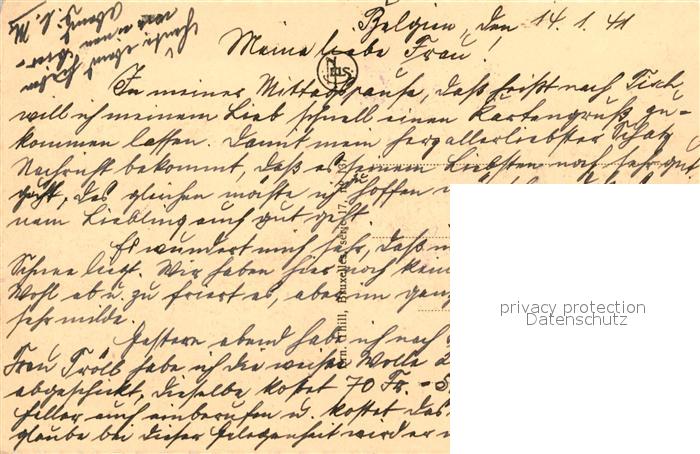 Belgien, den 14.1.41
Meine liebe Frau!
In meiner Mittagspause, daß heißt nach Tisch
will ich meinem Lieb schnell einen Kartengruß zu-
kommen lassen. Damit mein herzallerliebster Schatz
Nachricht bekommt, daß es seinem Liebsten noch sehr gut
geht, des gleichen möchte ich hoffen
nem Liebling auch gut geht.
Es wundert mich sehr, daß
Schnee liegt. Wir haben hier noch kein
Wohl ab u. zu friert es, aber im ganz
sehr milde.
Gestern abend habe ich nach
Frau Tröll habe ich die weiße Wolle
abgeschickt, dieselbe kostet 70 Fr.
Feller auch einberufen u. kostet das
glaube bei dieser Gelegenheit wird er
Ern. Thill, Bruxelles, série 17,
privacy protection
Datenschutz